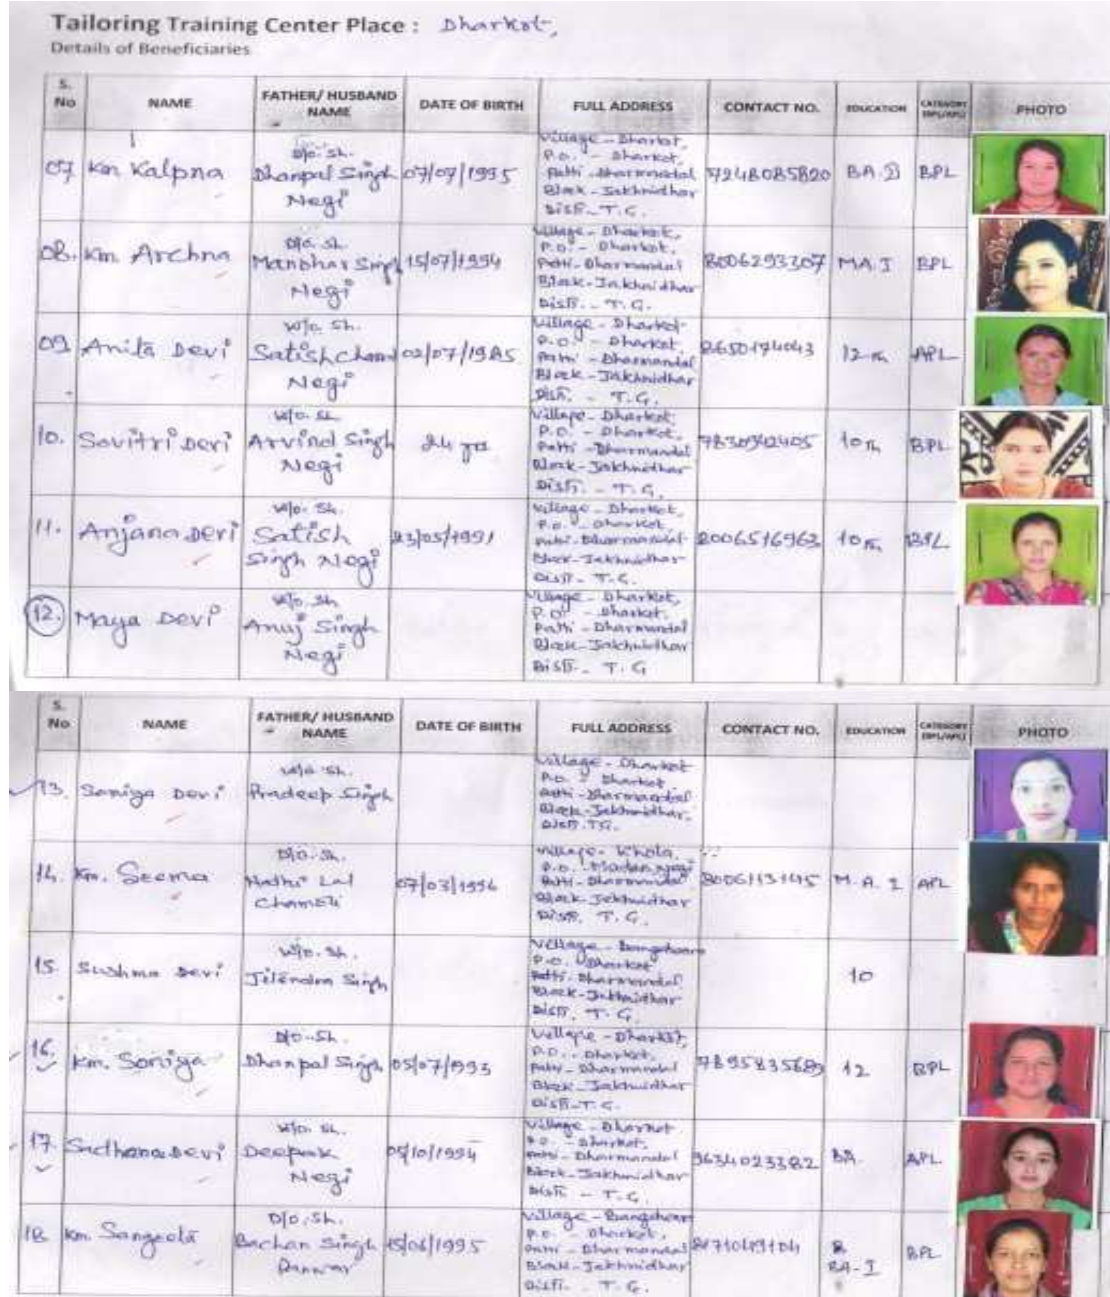 Tailoring Training Center Place : Dharkot,
Details of Beneficiaries
S. No NAME FATHER/ HUSBAND NAME DATE OF BIRTH FULL ADDRESS CONTACT NO. EDUCATION CATEGORY (BPL/APL) PHOTO
07 Km Kalpna
D/o. Sh. Dhanpal Singh Negi
07/07/1995
Village - Dharkot,
P.O. - Dharkot,
Patti - Dharmandal
Block - Jakhnidhar
Distt. - T.G.
7248085820 BA. BPL
08. Km. Archna
D/o. Sh. Manohar Singh Negi
15/07/1994
Village - Dharkot,
P.O. - Dharkot,
Patti - Dharmandal
Block - Jakhnidhar
Distt. - T.G.
8006293307 MA. I BPL
09 Anita Devi
W/o. Sh. Satish Chand Negi
02/07/1985
Village - Dharkot
P.O. - Dharkot,
Patti - Dharmandal
Block - Jakhnidhar
Distt. - T.G.
8650174043 12 th APL
10. Savitri Devi
W/o. Sh. Arvind Singh Negi
24
Village - Dharkot,
P.O. - Dharkot,
Patti - Dharmandal
Block - Jakhnidhar
Distt. - T.G.
10 th BPL
11. Anjana Devi
W/o. Sh. Satish Singh Negi
23/05/1991
Village - Dharkot,
P.O. - Dharkot,
Patti - Dharmandal
Block - Jakhnidhar
Distt. - T.G.
8006516963 10 th BPL
12. Maya Devi
W/o. Sh. Anuj Singh Negi
Village - Dharkot,
P.O. - Dharkot,
Patti - Dharmandal
Block - Jakhnidhar
Distt. - T.G
S. No NAME FATHER/ HUSBAND NAME DATE OF BIRTH FULL ADDRESS CONTACT NO. EDUCATION CATEGORY (BPL/APL) PHOTO
13. Soniya Devi
W/o Sh. Pradeep Singh
Village - Dharkot
P.O. - Dharkot
Patti - Dharmandal
Block - Jakhnidhar,
Distt. T.G.
14. Km. Seema
D/o. Sh. Nathi Lal Chamoli
07/03/1994
Village - Khola,
P.O. -
Patti - Dharmandal
Block - Jakhnidhar
Distt. T.G.
8006113145 M.A. I APL
15. Sushma Devi
W/o. Sh. Jitendra Singh
Village -
P.O. - Dharkot
Patti - Dharmandal
Block - Jakhnidhar
Distt. T.G.
10
16. Km. Soniya
D/o. Sh. Dhanpal Singh
05/07/1993
Village - Dharkot,
P.O. - Dharkot,
Patti - Dharmandal
Block - Jakhnidhar
Distt. - T.G.
7895835689 12 BPL
17. Sadhana Devi
W/o. Sh. Deepak Negi
05/10/1994
Village - Dharkot
P.O. - Dharkot,
Patti - Dharmandal
Block - Jakhnidhar
Distt. - T.G.
9634023382 BA. APL
18 Km. Sangeeta
D/o. Sh. Bachan Singh Panwar
15/06/1995
Village -
P.O. - Dharkot,
Patti - Dharmandal
Block - Jakhnidhar
Distt. - T.G.
BA - I BPL